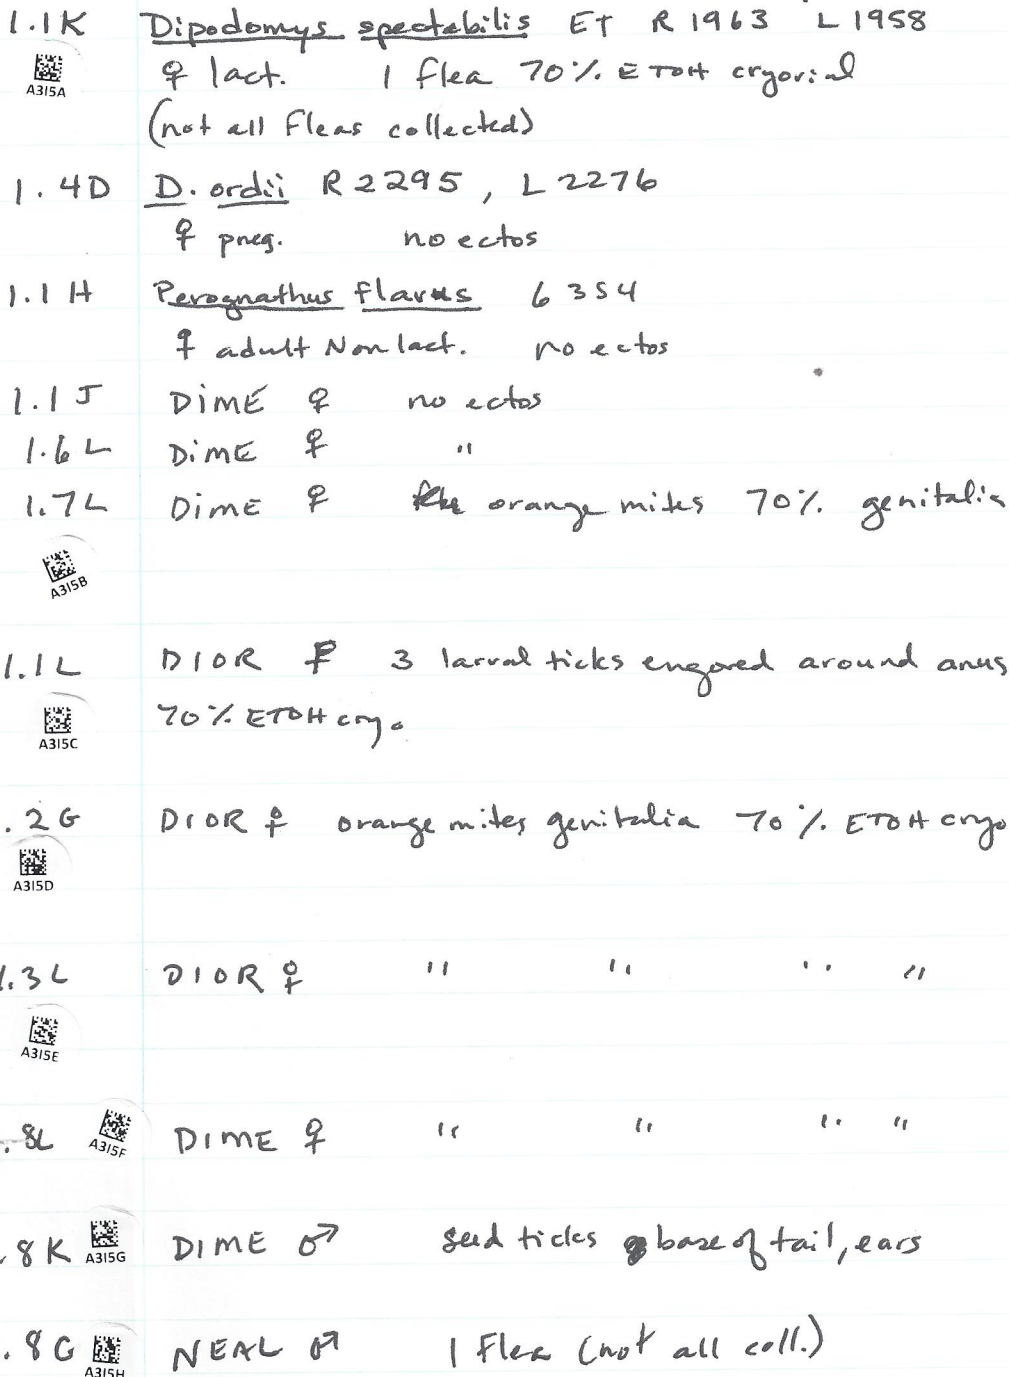 1.1K Dipodomys spectabilis ET R 1963 L 1958
A315A ♀ lact. 1 flea 70% ETOH cryovial
(not all fleas collected)
1.4D D. ordii R 2295, L 2276
♀ preg. no ectos
1.1H Perognathus flavus 6354
♀ adult Non lact. no ectos
1.1J DIME ♀ no ectos
1.6L DIME ♀ "
1.7L DIME ♀ orange mites 70% genitalia
A315B
1.1L DIOR F 3 larval ticks engored around anus
A315C 70% ETOH cryo
.2G DIOR ♀ orange mites genitalia 70% ETOH cryo
A315D
1.3L DIOR ♀ " " " "
A315E
.8L A315F DIME ♀ " " " "
.8K A315G DIME ♂ seed ticks base of tail, ears
.8G A315H NEAL ♂ 1 Flea (not all coll.)